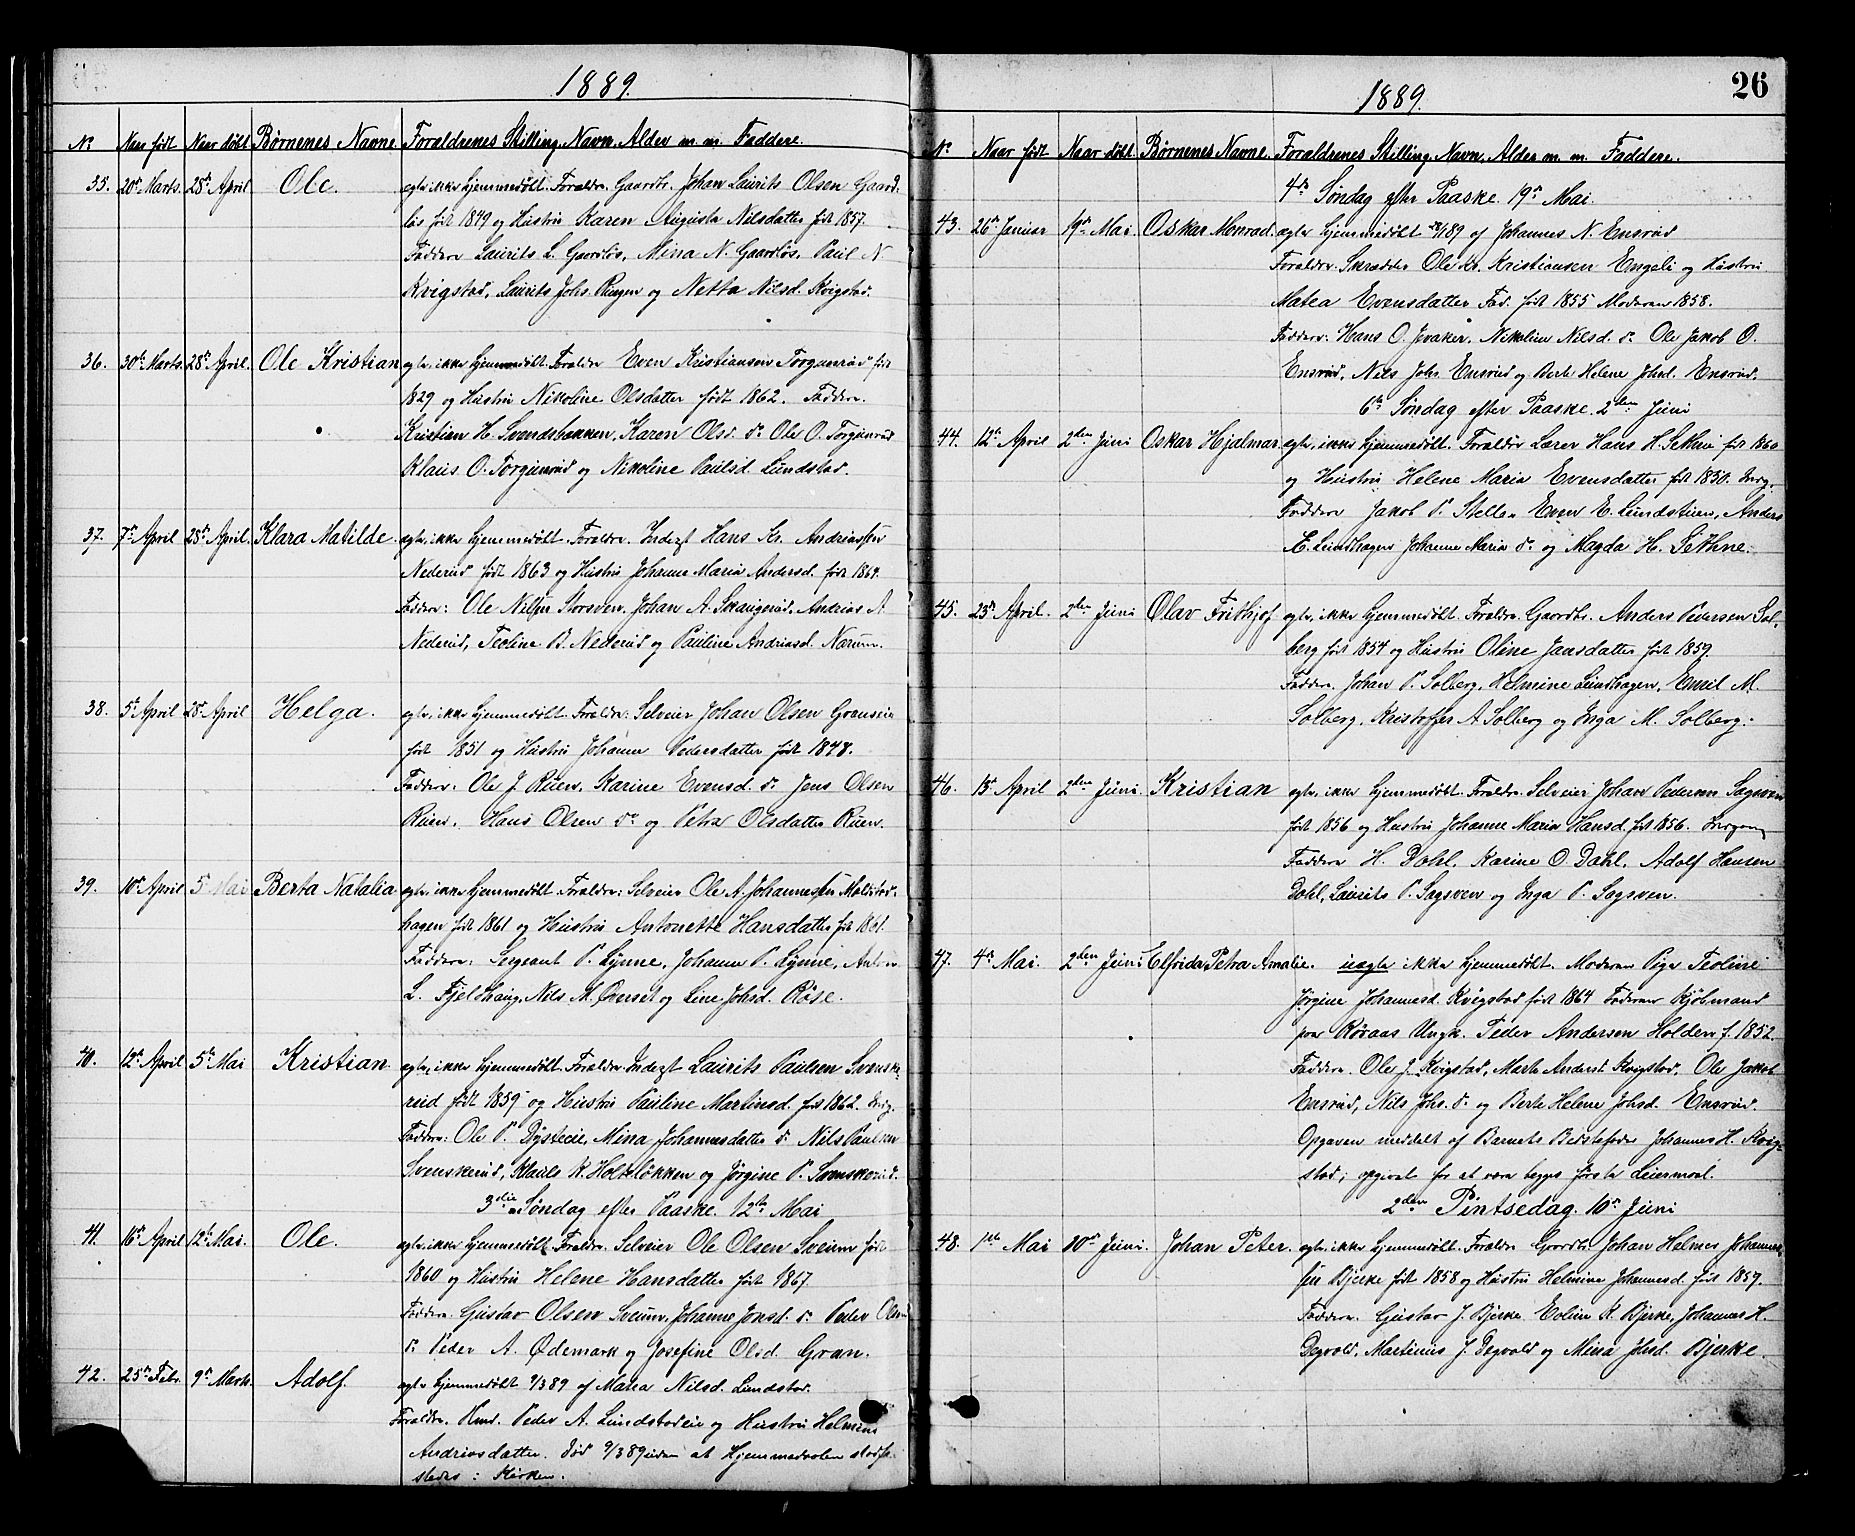 1889.
No Naar født Naar døbt Børnenes Navne Forældrenes Stilling, Navn, Alder m. m. Faddere.
35. 20de Marts. 28de April Ole. ægte, ikke hjemmedøbt. Foraldre. Gaardbr. Johan Laurits Olsen Gaard-
løs født 1849 og Hustru Karen Augusta Nilsdatter født 1857.
Faddere Laurits L. Gaardløs, Mina N. Gaardløs, Paul N.
Kvigstad, Laurits Johs. Ringen og Netta Nilsd. Kvigstad.
36. 30te Marts. 28de April. Ole Kristian ægte, ikke hjemmedøbt. Foraldre Even Kristiansen Torgunrud født
1829 og Hustru Nikoline Olsdatter født 1862. Faddere.
Kristian H. Svendsbakken, Karen Olsd. do Ole O. Torgunrud
Klaus O. Torgunrud og Nikoline Paulsd. Lundstad.
37. 7de April 28de April. Klara Matilde. ægte, ikke hjemmedøbt. Foraldre. Inderst Hans Kr. Andriassen
Nederud født 1863 og Hustru Johanne Maria Andersd. født 1864.
Faddere: Ole Nilsen Storsven, Johan A. Skaugerud, Andrias A
Nederud, Teoline B. Nederud og Pauline Andriasd. Narum.
38. 5te April 28de April Helga. ægte, ikke hjemmedøbt. Foraldre: Selveier Johan Olsen Granseie
født 1851 og Hustru Johanne Pedersdatter født 1848.
Faddere. Ole J. Ruen, Karine Evensd. do Jens Olsen
Ruen, Hans Olsen do og Petra Olsdatter Ruen.
39. 10de April 5te Mai Berta Natalia ægte ikke hjemmedøbt. Foraldre: Selveier Ole A. Johannessen Melbstad-
hagen født 1861 og Hustru Antonette Hansdatter født 1861.
Faddere: Sergeant P. Lynne, Johanne P. Lynne, Anton
L. Fjeldhaug, Nils M. Øverset og Line Johsd. Røse.
40. 12te April 5te Mai Kristian ægte, ikke hjemmedøbt. Foraldre Inderst Laurits Paulsen Svenske-
rud født 1859 og Hustru Pauline Martinsd. født 1862. Indg.
Faddere: Ole P. Dysteeie, Mina Johannesdatter do Nils Paulsen
Svenskerud, Klaus K. Holtsløkken og Jørgine P. Svenskerud.
3die Søndag efter Paaske. 12te Mai
41. 16de April 12te Mai. Ole. ægte, ikke hjemmedøbt. Foraldre. Selveier Ole Olsen Sveum født
1860 og Hustru Helene Hansdatter født 1867.
Faddere: Gustav Olsen Sveum, Johanne Jonsd. do Peder Olsen
do Peder A. Ødemark og Josefine Olsd. Gran.
42. 25de Febr. 9de Marts. Adolf. ægte hjemmedøbt 9/3 89 af Maria Nilsd. Lundstad.
Foraldre. Hmd. Peder A. Lundstadeie og Hustru Helmine
Andriasdatter. Død 9/3 89 uden at Hjemmedaaben stadfæ-
stedes i Kirken.
26
1889.
No Naar født Naar døbt. Børnenes Navne. Foraldrenes Stilling, Navn, Alder m. m. Faddere.
4de Søndag efter Paaske. 19de Mai
43. 26de Januar 19de Mai. Oskar Monrad. ægte hjemmedøbt /1 89 af Johannes N. Ensrud
Foraldre. Skrædder Ole Kr. Kristiansen Engeli og Hustru
Matea Evensdatter Fad. født 1855 Moderen 1858.
Faddere: Hans O. Jevaker, Nikoline Nilsd. do Ole Jakob O.
Ensrud, Nils Johs. Ensrud og Berte Helene Johsd. Ensrud.
6te Søndag efter Paaske. 2den Juni
44. 12te April 2den Juni Oskar Hjalmar ægte, ikke hjemmedøbt. Foraldre Lærer Hans H. Sethne født 1860
og Hustru Helene Maria Evensdatter født 1850. Indg.
Faddere Jakob P. Stelle. Even E. Lundstuen, Anders
E. Lundhagen Johanne Maria do og Magda H. Sethne.
45. 23de April. 2den Juni Olav Frithjof ægte, ikke hjemmedøbt. Foraldre. Gaardbr. Anders Pedersen Sol-
berg født 1854 og Hustru Oline Jansdatter født 1859.
Faddere. Johan P. Solberg, Helmine Lundhagen, Emil M.
Solberg, Kristoffer A. Solberg og Inga M. Solberg.
46. 13de April 2den Juni. Kristian ægte, ikke hjemmedøbt. Foraldre. Selveier Johan Pedersen Sagsveen
født 1856 og Hustru Johanne Maria Hansd. født 1856. Indgang
Faddere H. Dahl, Karine O. Dahl, Adolf Hansen
Dahl, Laurits P. Sagsveen og Inga P. Sagsveen.
47. 4de Mai. 2den Juni Elfrida Petra Amalie. uægte ikke hjemmedøbt. Moderen Pige Teoline
Jørgine Johannesd. Kvigstad født 1864 Faderen Kjøbmand
paa Røraas Ungk. Peder Andersen Holden f. 1852.
Faddere. Ole J. Kvigstad, Marte Andersd. Kvigstad, Ole Jakob
Ensrud, Nils Johs. do og Berte Helene Johsd. Ensrud.
Opgaven meddelt af Barnets Bedstefader Johannes H. Kvig-
stad; opgivet for at være begges første Leiermaal.
2den Pintsedag. 10de Juni
48. 1ste Mai 10de Juni. Johan Peter. ægte, ikke hjemmedøbt. Foraldre Gaardbr. Johan Helmer Johannes-
sen Bjerke født 1858 og Hustru Helmine Johannesd. født 1859.
Faddere. Gustav J. Bjerke. Eoline K. Bjerke, Johannes H.
Degvold. Martinus J. Degvold og Mina Johsd. Bjerke.